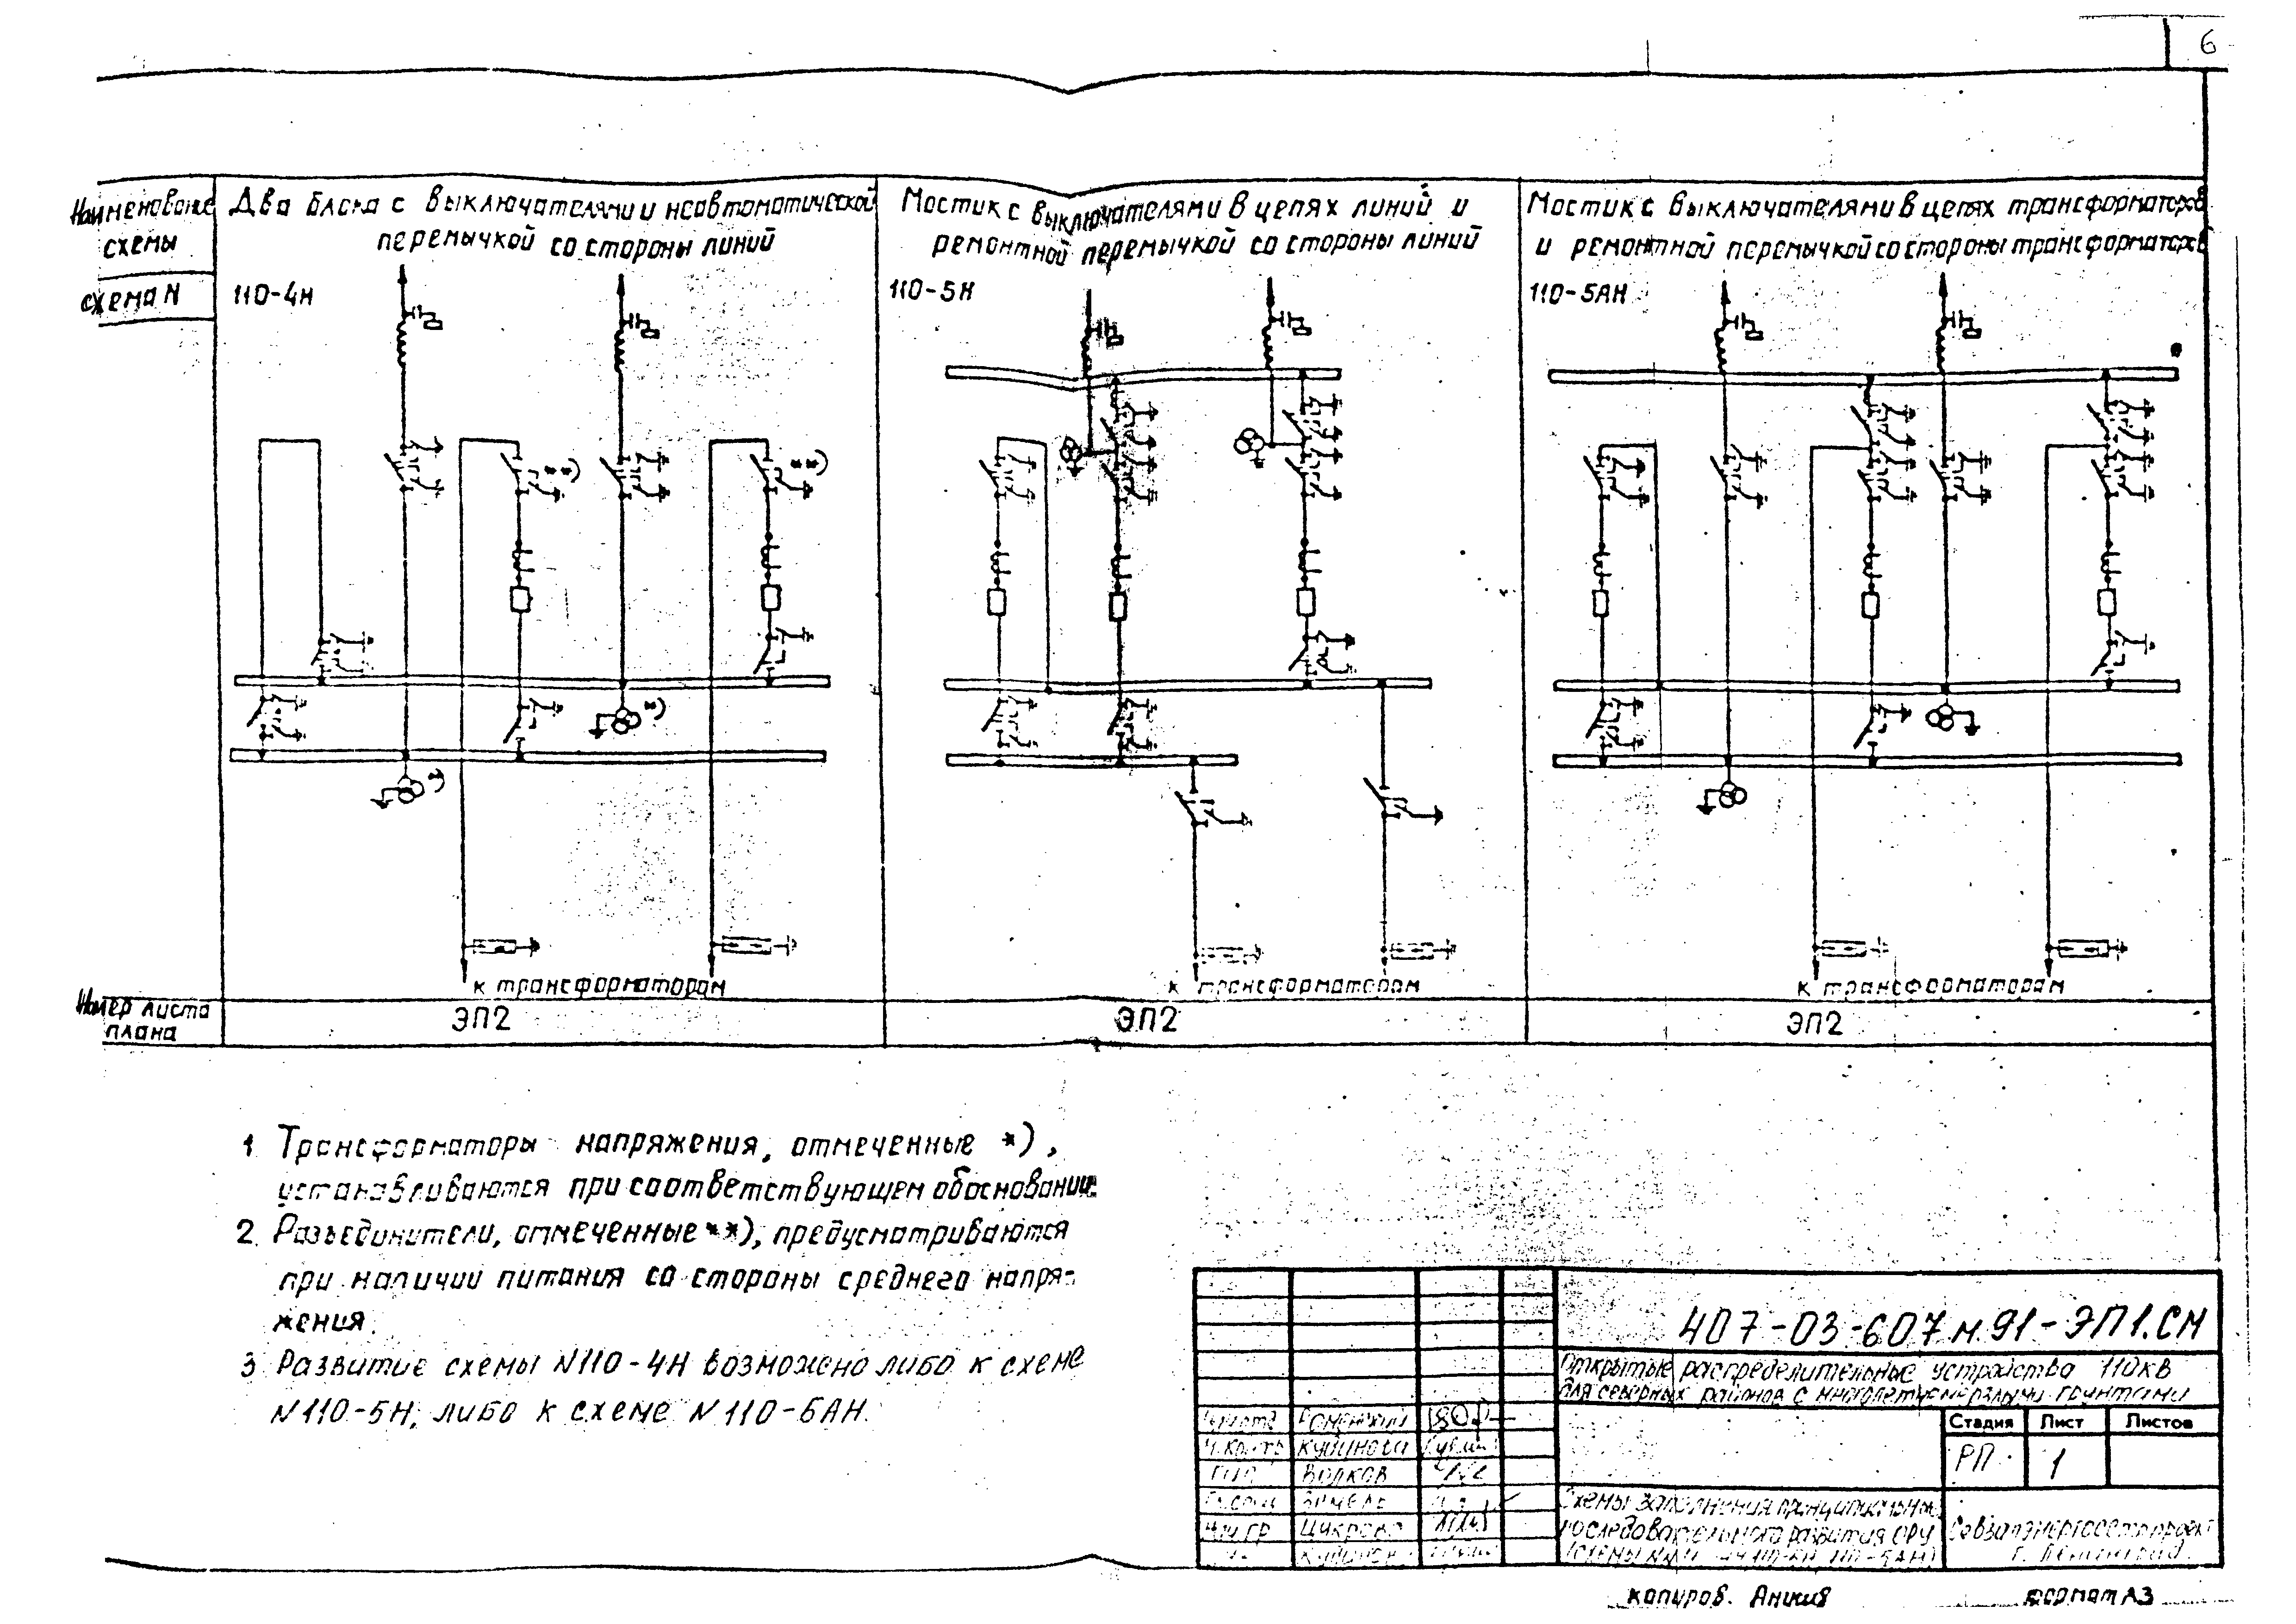 6
Наименование
схемы
Два блока с выключателями и неавтоматической
перемычкой со стороны линий
Мостик с выключателями в цепях линий и
ремонтной перемычкой со стороны линий
Мостик с выключателями в цепях трансформаторов
и ремонтной перемычкой со стороны трансформаторов
схема N
110-4Н
110-5Н
110-5АН
**)
**)
*)
*)
к трансформаторам
к трансформаторам
к трансформаторам
Номер листа
плана
ЭП2
ЭП2
ЭП2
1 Трансформаторы напряжения, отмеченные *),
устанавливаются при соответствующем обосновании
2. Разъединители, отмеченные **), предусматриваются
при наличии питания со стороны среднего напря-
жения.
3 Развитие схемы N110-4Н возможно либо к схеме
N110-5Н, либо к схеме N110-5АН.
407-03-607м.91-ЭП1.СМ
Открытые распределительные устройства 110кВ
для северных районов с многолетнемерзлыми грунтами
Стадия Лист Листов
РП 1
Волков
Схемы заполнения принципиальные
последовательного развития ОРУ
Севзапэнергосетьпроект
г. Ленинград
копиров.
формат А3